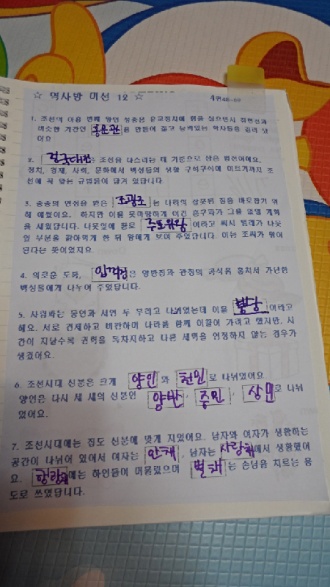 ☆ 역사방 미션 12 ☆ 4권
1. 조선의 아홉 번째 왕인 성종은 유교정치에 힘을 실으면서 집현전과
비슷한 기관인 홍문관을 만들어 젊고 능력있는 학자들을 길러 냈
어요.
2. 경국대전은 조선을 다스리는 데 기준으로 삼은 법전이에요.
정치, 경제, 사회, 문화에서 백성들의 생활 구석구석에 이르기까지 조
선에 꼭 맞는 규범들이 담겨 있답니다.
3. 중종의 믿음을 받은 조광조는 나라의 잘못된 점을 바로잡기 위
해 애썼어요. 하지만 이를 못마땅하게 여긴 훈구파가 그를 없앨 계획
을 세웠답니다. 나뭇잎에 꿀로 주초위왕이라고 써서 벌레가 나뭇
잎 부분을 갉아먹게 한 뒤 왕에게 보여 주었답니다. 이는 조씨가 왕이
된다는 뜻이었지요
4. 의로운 도적, 임꺽정은 양반집과 관청의 곡식을 훔쳐서 가난한
백성들에게 나누어 주었답니다.
5. 사림파는 동인과 서인 두 무리로 나뉘었는데 이를 붕당이라고
해요. 서로 견제하고 비판하며 나라를 함께 이끌어 가려고 했지만, 시
간이 지날수록 권력을 독차지하고 다른 세력을 인정하지 않는 경우가
생겼어요.
6. 조선시대 신분은 크게 양인과 천인로 나뉘었어요
양인은 다시 세 개의 신분인 양반, 중인, 상민로 나뉘
었어요.
7. 조선시대에는 집도 신분에 맞게 지었어요. 남자와 여자가 생활하는
공간이 나뉘어 있어서 여자는 안채, 남자는 사랑채에서 생활했어
요. 행랑채에는 하인들이 머물렀으며 별채는 손님을 치르는 용
도로 쓰였답니다.